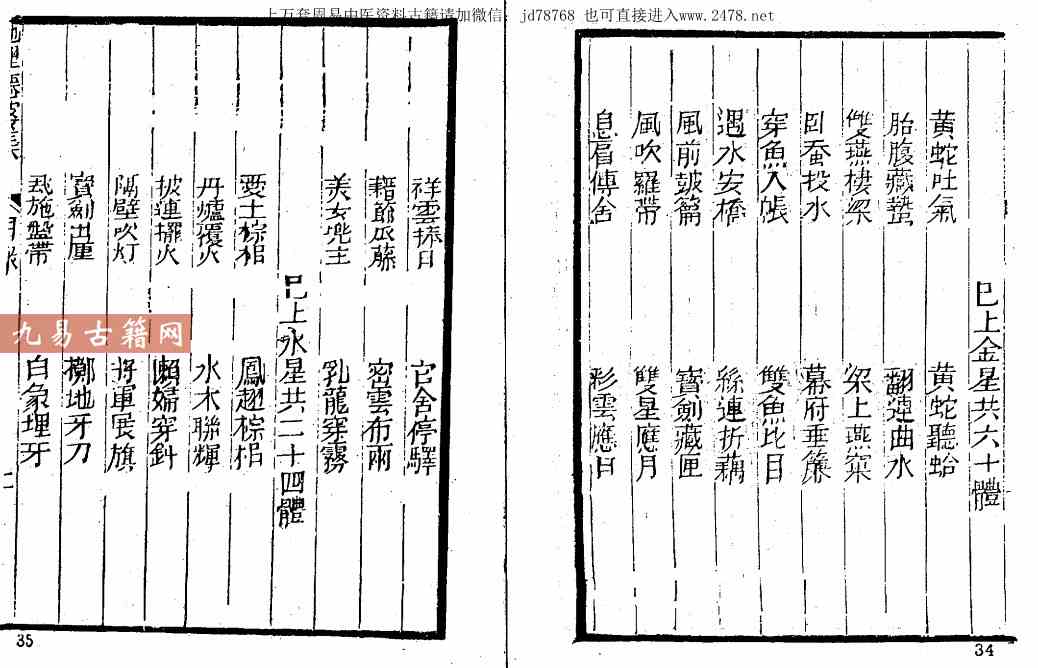 上万套周易中医资料古籍请加微信: jd78768 也可直接进入www.2478.net
已上金星共六十體
黃蛇吐氣 黃蛇聽蛤
胎腹藏蟄 翻連曲水
雙燕棲梁 梁上燕窠
臥蚕投水 幕府垂簾
穿魚入帳 雙魚比目
遇水安橋 絲連折藕
風前鼓篇 寶劍藏匣
風吹羅帶 雙星應月
息肩傳舍 彩雲應日
34
祥雲捧日 官舍停驛
藉節瓜藤 密雲布雨
美女兜主 乳龍穿霧
已上水星共二十四體
棕棺 鳳翅棕棺
丹爐覆火 水木聯輝
披連擺火 懶婦穿針
隔壁吹灯 將軍展旗
寶劍出匣 擲地牙刀
施盤帶 白象埋牙
目录
九易古籍网
35